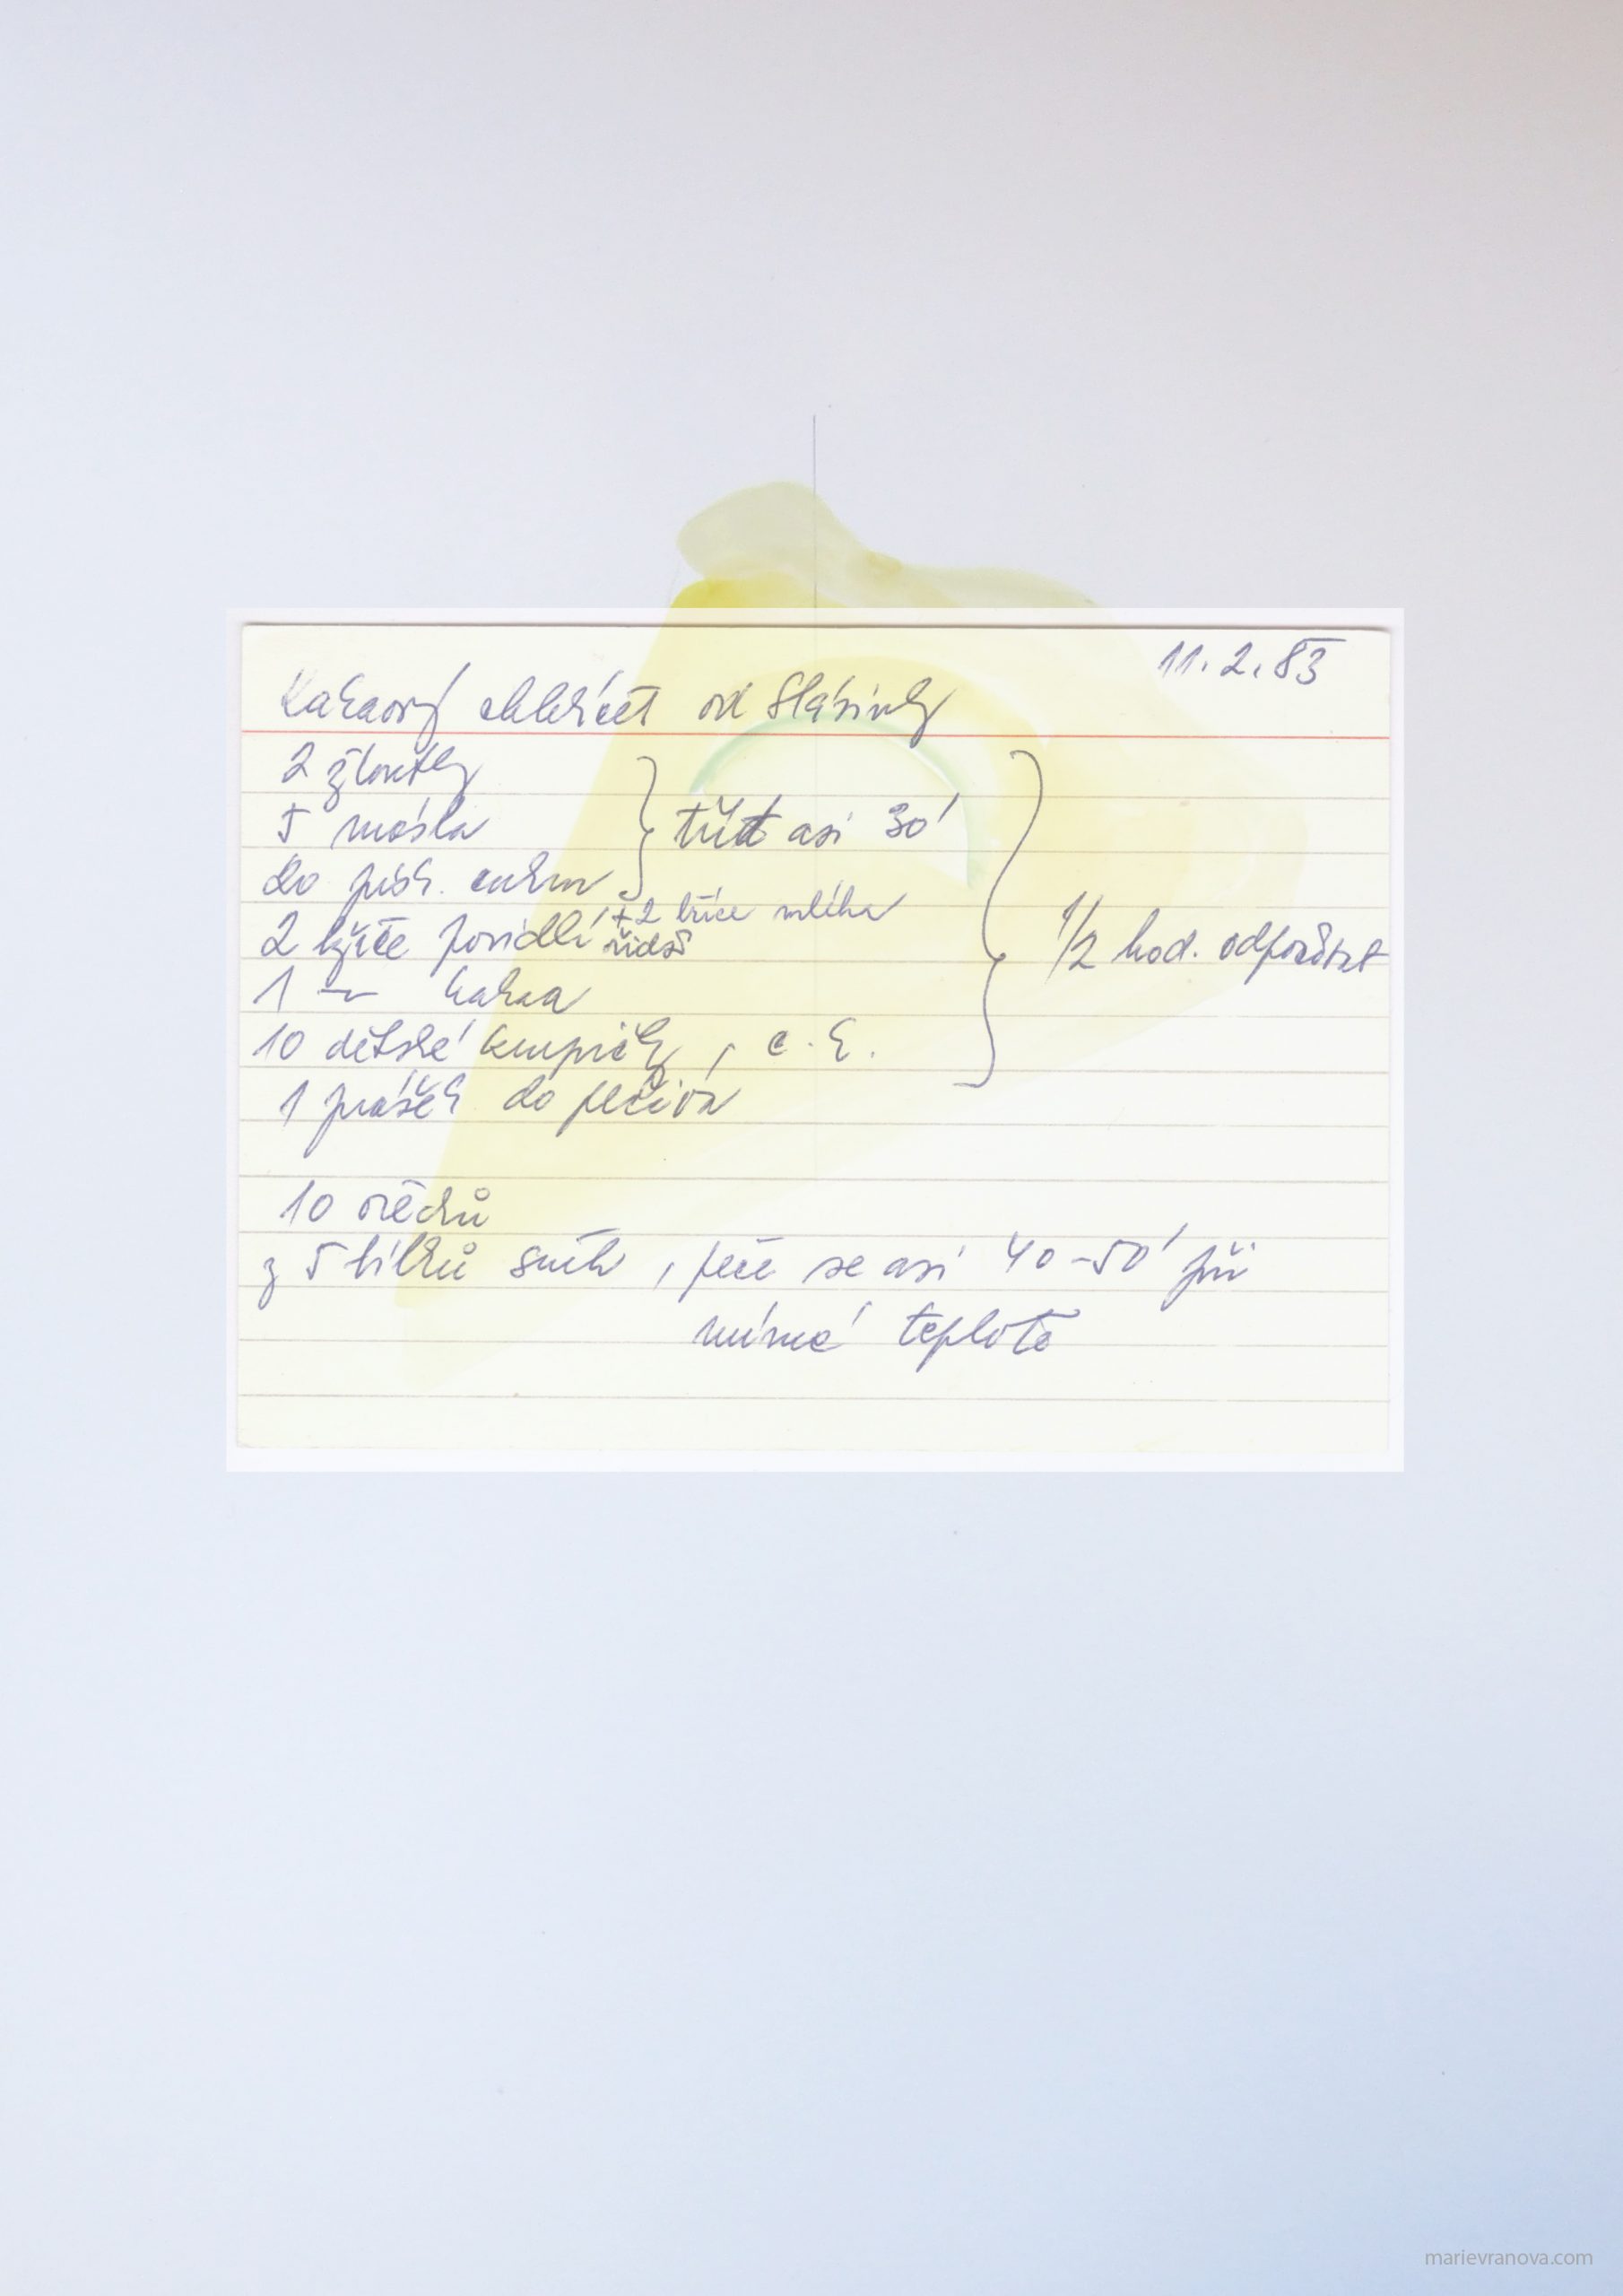 11. 2. 83
Kakaový chlebíček od
2 žloutky
5 másla
do písk. cukru
třít asi 30'
+ 2 lžíce mléka
2 lžíce povidlí řidší
1 〃 kakaa
10 dětské krupičky, c. k.
1/2 hod. odpočívat
1 prášek do pečiva
10 ořechů
z 5 bílků sníh, peče se asi 40-50' při
mírné teplotě
marievranova.com